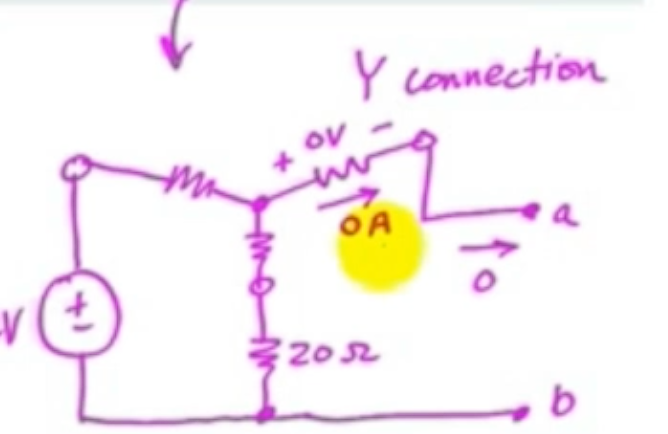 Y connection
+ 0V -
0A
a
0
V
+
-
20Ω
b